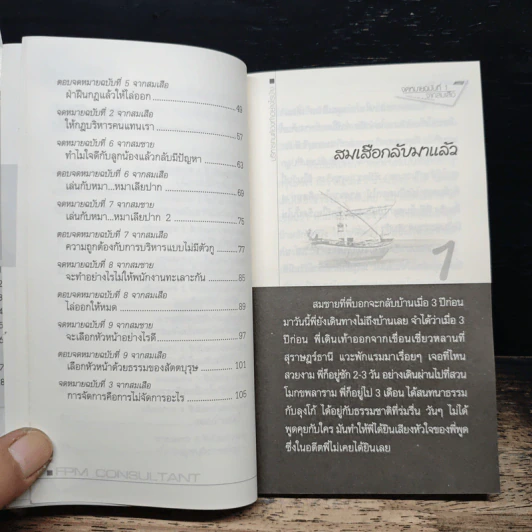 ตอบจดหมายฉบับที่ 5 จากสมเสือ
ฝ่าฝืนกฎแล้วให้ไล่ออก 49
จดหมายฉบับที่ 2 จากสมเสือ
ให้กฎบริหารคนแทนเรา 57
จดหมายฉบับที่ 6 จากสมชาย
ทำไมใจดีกับลูกน้องแล้วกลับมีปัญหา 61
ตอบจดหมายฉบับที่ 6 จากสมเสือ
เล่นกับหมา...หมาเลียปาก 69
จดหมายฉบับที่ 7 จากสมชาย
เล่นกับหมา...หมาเลียปาก 2 75
ตอบจดหมายฉบับที่ 7 จากสมเสือ
ความถูกต้องกับการบริหารแบบไม่มีตัวกู 77
จดหมายฉบับที่ 8 จากสมชาย
จะทำอย่างไรไม่ให้พนักงานทะเลาะกัน 85
ตอบจดหมายฉบับที่ 8 จากสมเสือ
ไล่ออกให้หมด 89
จดหมายฉบับที่ 9 จากสมชาย
จะเลือกหัวหน้าอย่างไรดี 97
ตอบจดหมายฉบับที่ 9 จากสมเสือ
เลือกหัวหน้าด้วยธรรมของสัตตบุรุษ 101
จดหมายฉบับที่ 3 จากสมเสือ
การจัดการคือการไม่จัดการอะไร 105
FPM CONSULTANT
จดหมายฉบับที่ 1
จากสมเสือ
7
สมเสือกลับมาแล้ว
1
สมชายที่พี่บอกจะกลับบ้านเมื่อ 3 ปีก่อน
มาวันนี้พี่ยังเดินทางไม่ถึงบ้านเลย จำได้ว่าเมื่อ 3
ปีก่อน พี่เดินเท้าออกจากเขื่อนเชี่ยวหลานที่
สุราษฎร์ธานี แวะพักแรมมาเรื่อยๆ เจอที่ไหน
สวยงาม พี่ก็อยู่ซัก 2-3 วัน อย่างเดินผ่านไปที่สวน
โมกขพลาราม พี่ก็อยู่ไป 3 เดือน ได้สนทนาธรรม
กับลุงโก้ ได้อยู่กับธรรมชาติที่ร่มรื่น วันๆ ไม่ได้
พูดคุยกับใคร มันทำให้พี่ได้ยินเสียงหัวใจของพี่พูด
ซึ่งในอดีตพี่ไม่เคยได้ยินเลย